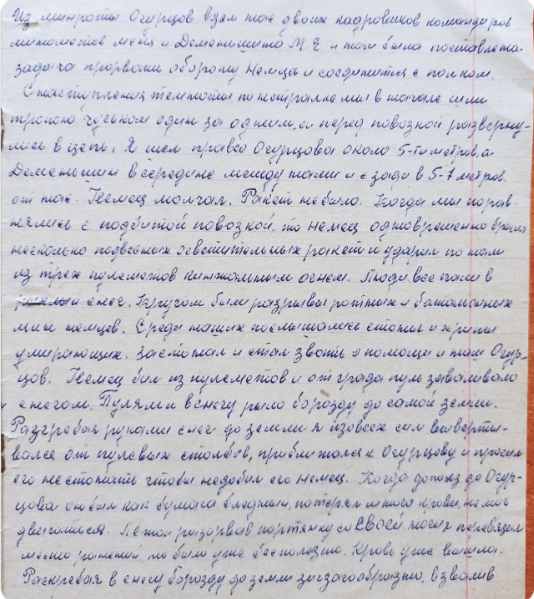 Из минроты Огурцов взял нас двоих кадровиков командиров
минометов меня и Деменьшина М. Е и нам была поставлена
задача прорвать оборону немца и соединится с полком.
С наступления темноты по нейтралке мы в начале шли
тропою гуськом один за одним, а перед повозкой разверну-
лись в цепь. Я шел правее Огурцова около 5-ти метров, а
Деменьшин в середине между нами и сзади в 5-7 метров
от нас. Немец молчал. Ракет не было. Когда мы порав-
нялись с подбитой повозкой, то немец одновременно бросил
несколько подвесных осветительных ракет и ударил по нам
из трех пулеметов кинжальным огнем. Люди все пали в
снег. Кругом были разрывы ротных и батальонных
мин немцев. Среди наших послышались стоны и крики
умирающих. Застонал и стал звать о помощи и наш Огур-
цов. Немец бил из пулеметов и от града пуль заваливало
снегом. Пулями в снегу рыло борозду до самой земли.
Разгребая руками снег до земли я изо всех сил выверты-
вался от пулевых столбов, приблизился к Огурцову и просил
его не стонать чтобы недобил его немец. Когда дополз до Огур-
цова он был как бумага бледный, потерял много крови, не мог
двигаться. Я стал разорвав портянку со своей ноги перевязал
место ранений, но было уже бесполезно. Кровь уже вышла.
Раскрёвая в снегу борозду до земли зигзагообразно, взвалив